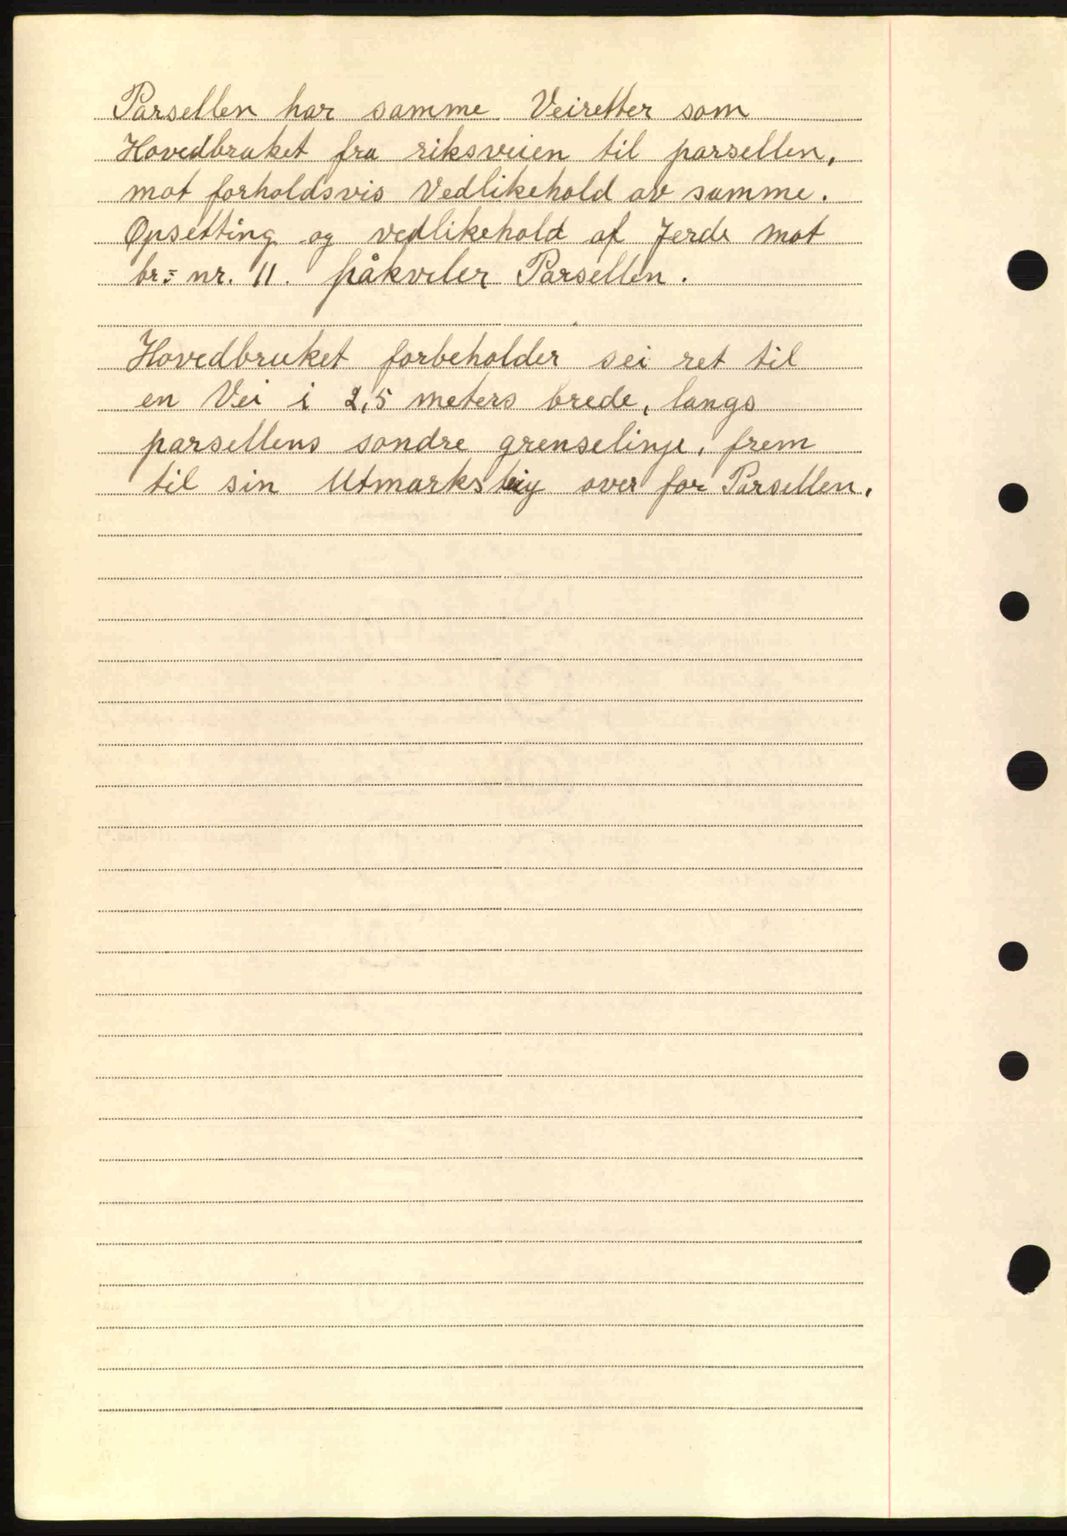 Parsellen har samme Veiretter som
Hovedbruket fra riksveien til parsellen,
mot forholdsvis Vedlikehold av samme.
Opsetting og vedlikehold af Jerde mot
br= nr. 11. påkviler Parsellen.
Hovedbruket forbeholder sei ret til
en Vei i 2,5 meters brede, langs
parsellens sondre grenselinje, frem
til sin Utmarksteig over for Parsellen.